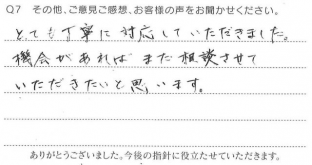 Q7 その他、ご意見ご感想、お客様の声をお聞かせください。
とても丁寧に対応していただきました。
機会があれば また相談させて
いただきたいと思います。
ありがとうございました。今後の指針に役立たせていただきます。